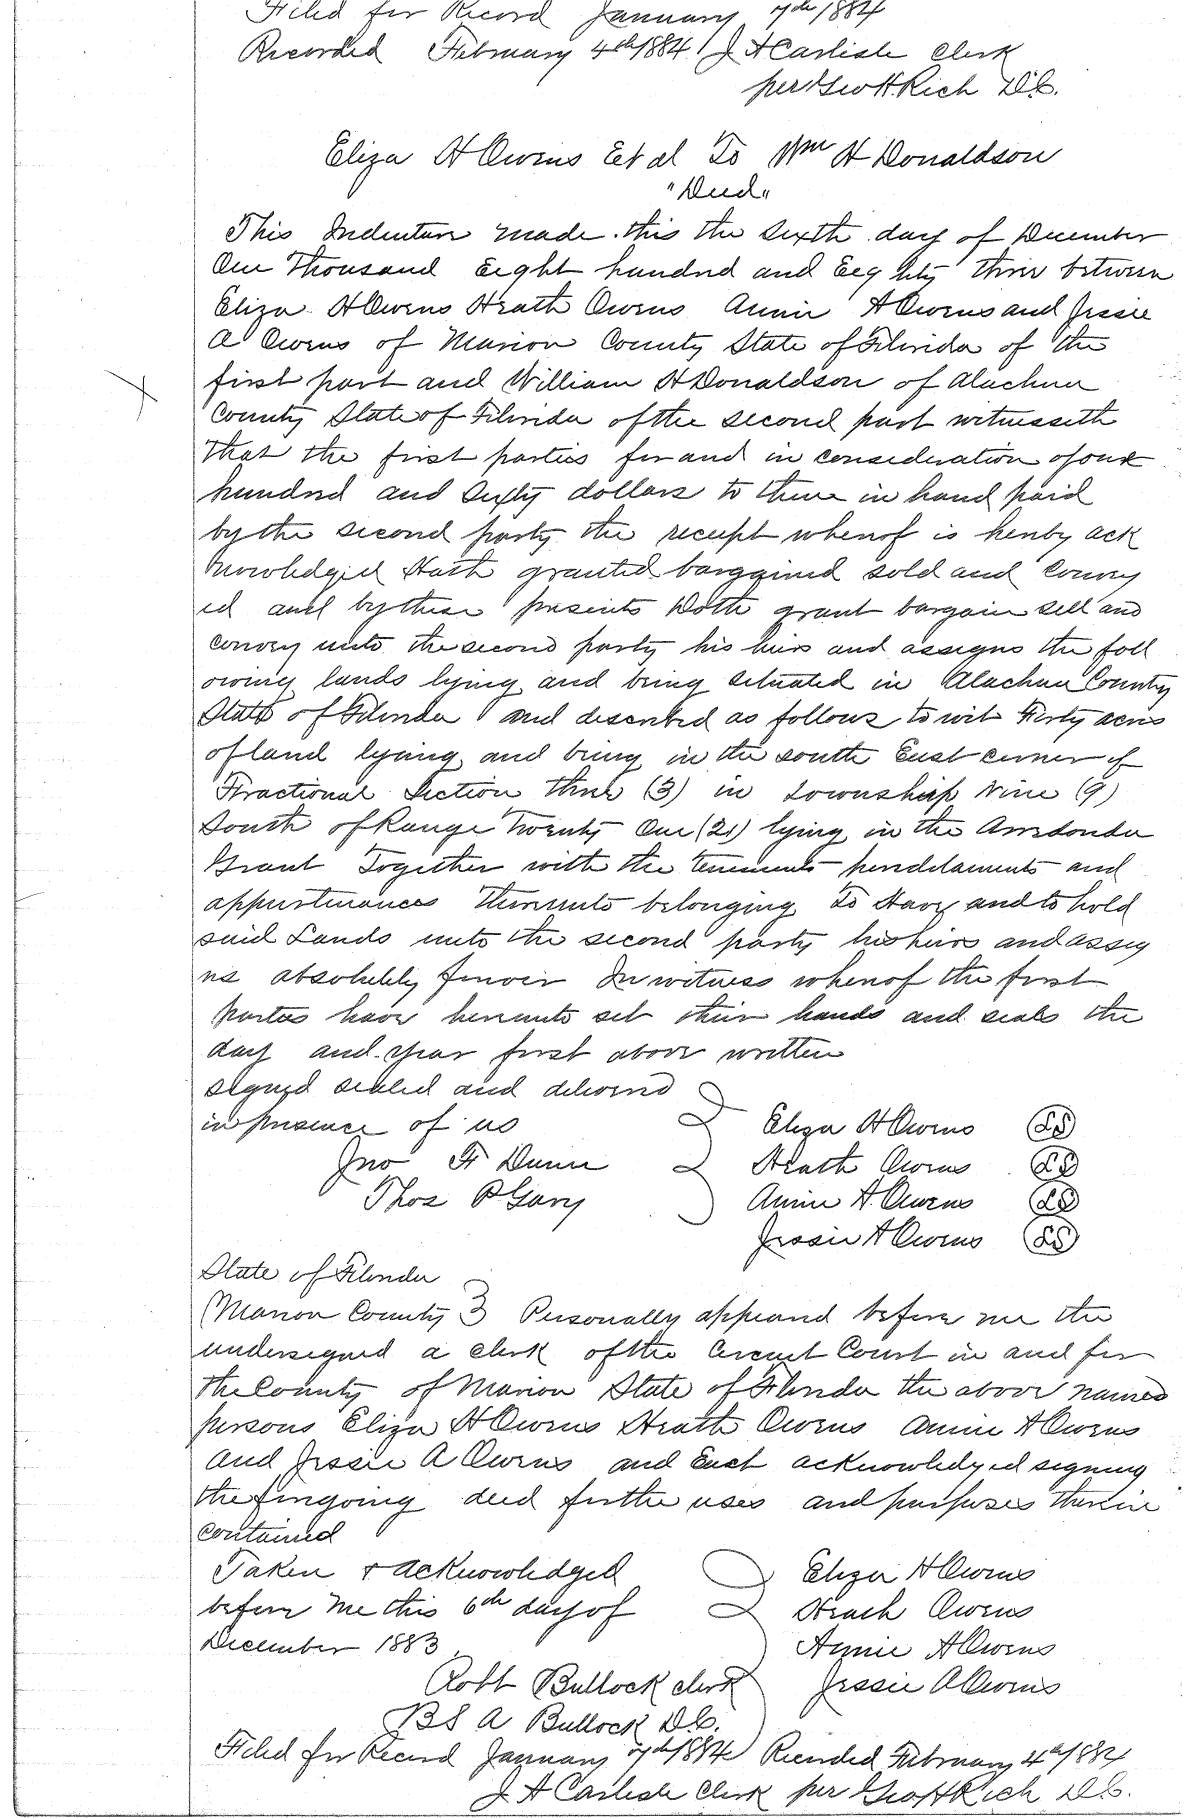 Filed for Record January 7th 1884
Recorded February 4th 1884 J A Carlisle Clerk
per Geo H Rich D.C.
Eliza H Owens Et al To Wm H Donaldson
"Deed"
This Indenture made this the Sixth day of December
One Thousand Eight hundred and Eeg hty three between
Eliza H Owens Heath Owens Annie A Owens and Jessie
A Owens of Marion County State of Florida of the
first part and William H Donaldson of Alachua
County State of Florida of the second part witnesseth
That the first parties for and in consideration of
hundred and Sixty dollars to them in hand paid
by the second party the receipt whereof is hereby ack
nowledged Hath granted bargained sold and Convey
ed and by these presents Doth grant bargain sell and
convey unto the second party his heirs and assigns the foll
owing lands lying and being situated in Alachua County
State of Florida and described as follows to wit Forty acres
of land lying and being in the south East corner of
Fractional Section three (3) in Township Nine (9)
South of Range Twenty One (21) lying in the Arredonda
Grant Together with the tenements and
appurtenances thereunto belonging To Have and to hold
said Lands unto the second party his heirs and assig
ns absolutely forever In witness whereof the first
parties have hereunto set their hands and seals the
day and year first above written
signed sealed and delivered
in presence of us Eliza H Owens LS
Jno F Dunn Heath Owens LS
Thos P Gary Annie A Owens LS
Jessie A Owens LS
State of Florida
Marion County } Personally appeared before me the
undersigned a clerk of the Circuit Court in and for
the County of Marion State of Florida the above named
persons Eliza H Owens Heath Owens Annie A Owens
and Jessie A Owens and Each acknowledged signing
the forgoing deed for the uses and purposes therein
contained
Taken & acknowledged Eliza H Owens
before me this 6th day of Heath Owens
December 1883 Annie A Owens
Robt Bullock clerk Jessie A Owens
BS A Bullock D.C.
Filed for Record January 7th 1884 Recorded February 4th 1884
J A Carlisle Clerk per Geo H Rich D.C.